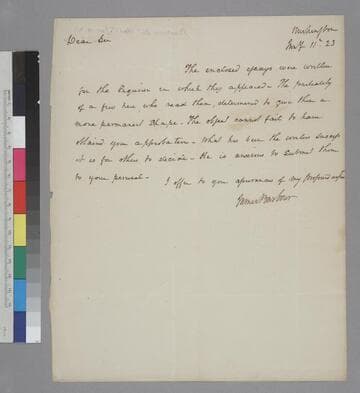 Washington
Jany 11th 23
Dear Sir
The enclosed essays were written
for the Enquirer in which they appeared - The partiality
of a few here who read them, determined to give them a
more permanent shape - The object cannot fail to have
obtained your approbation - What has been the writers success
it is for others to decide - He is anxious to submit them
to your perusal - I offer to you assurances of my profound
James Barbour